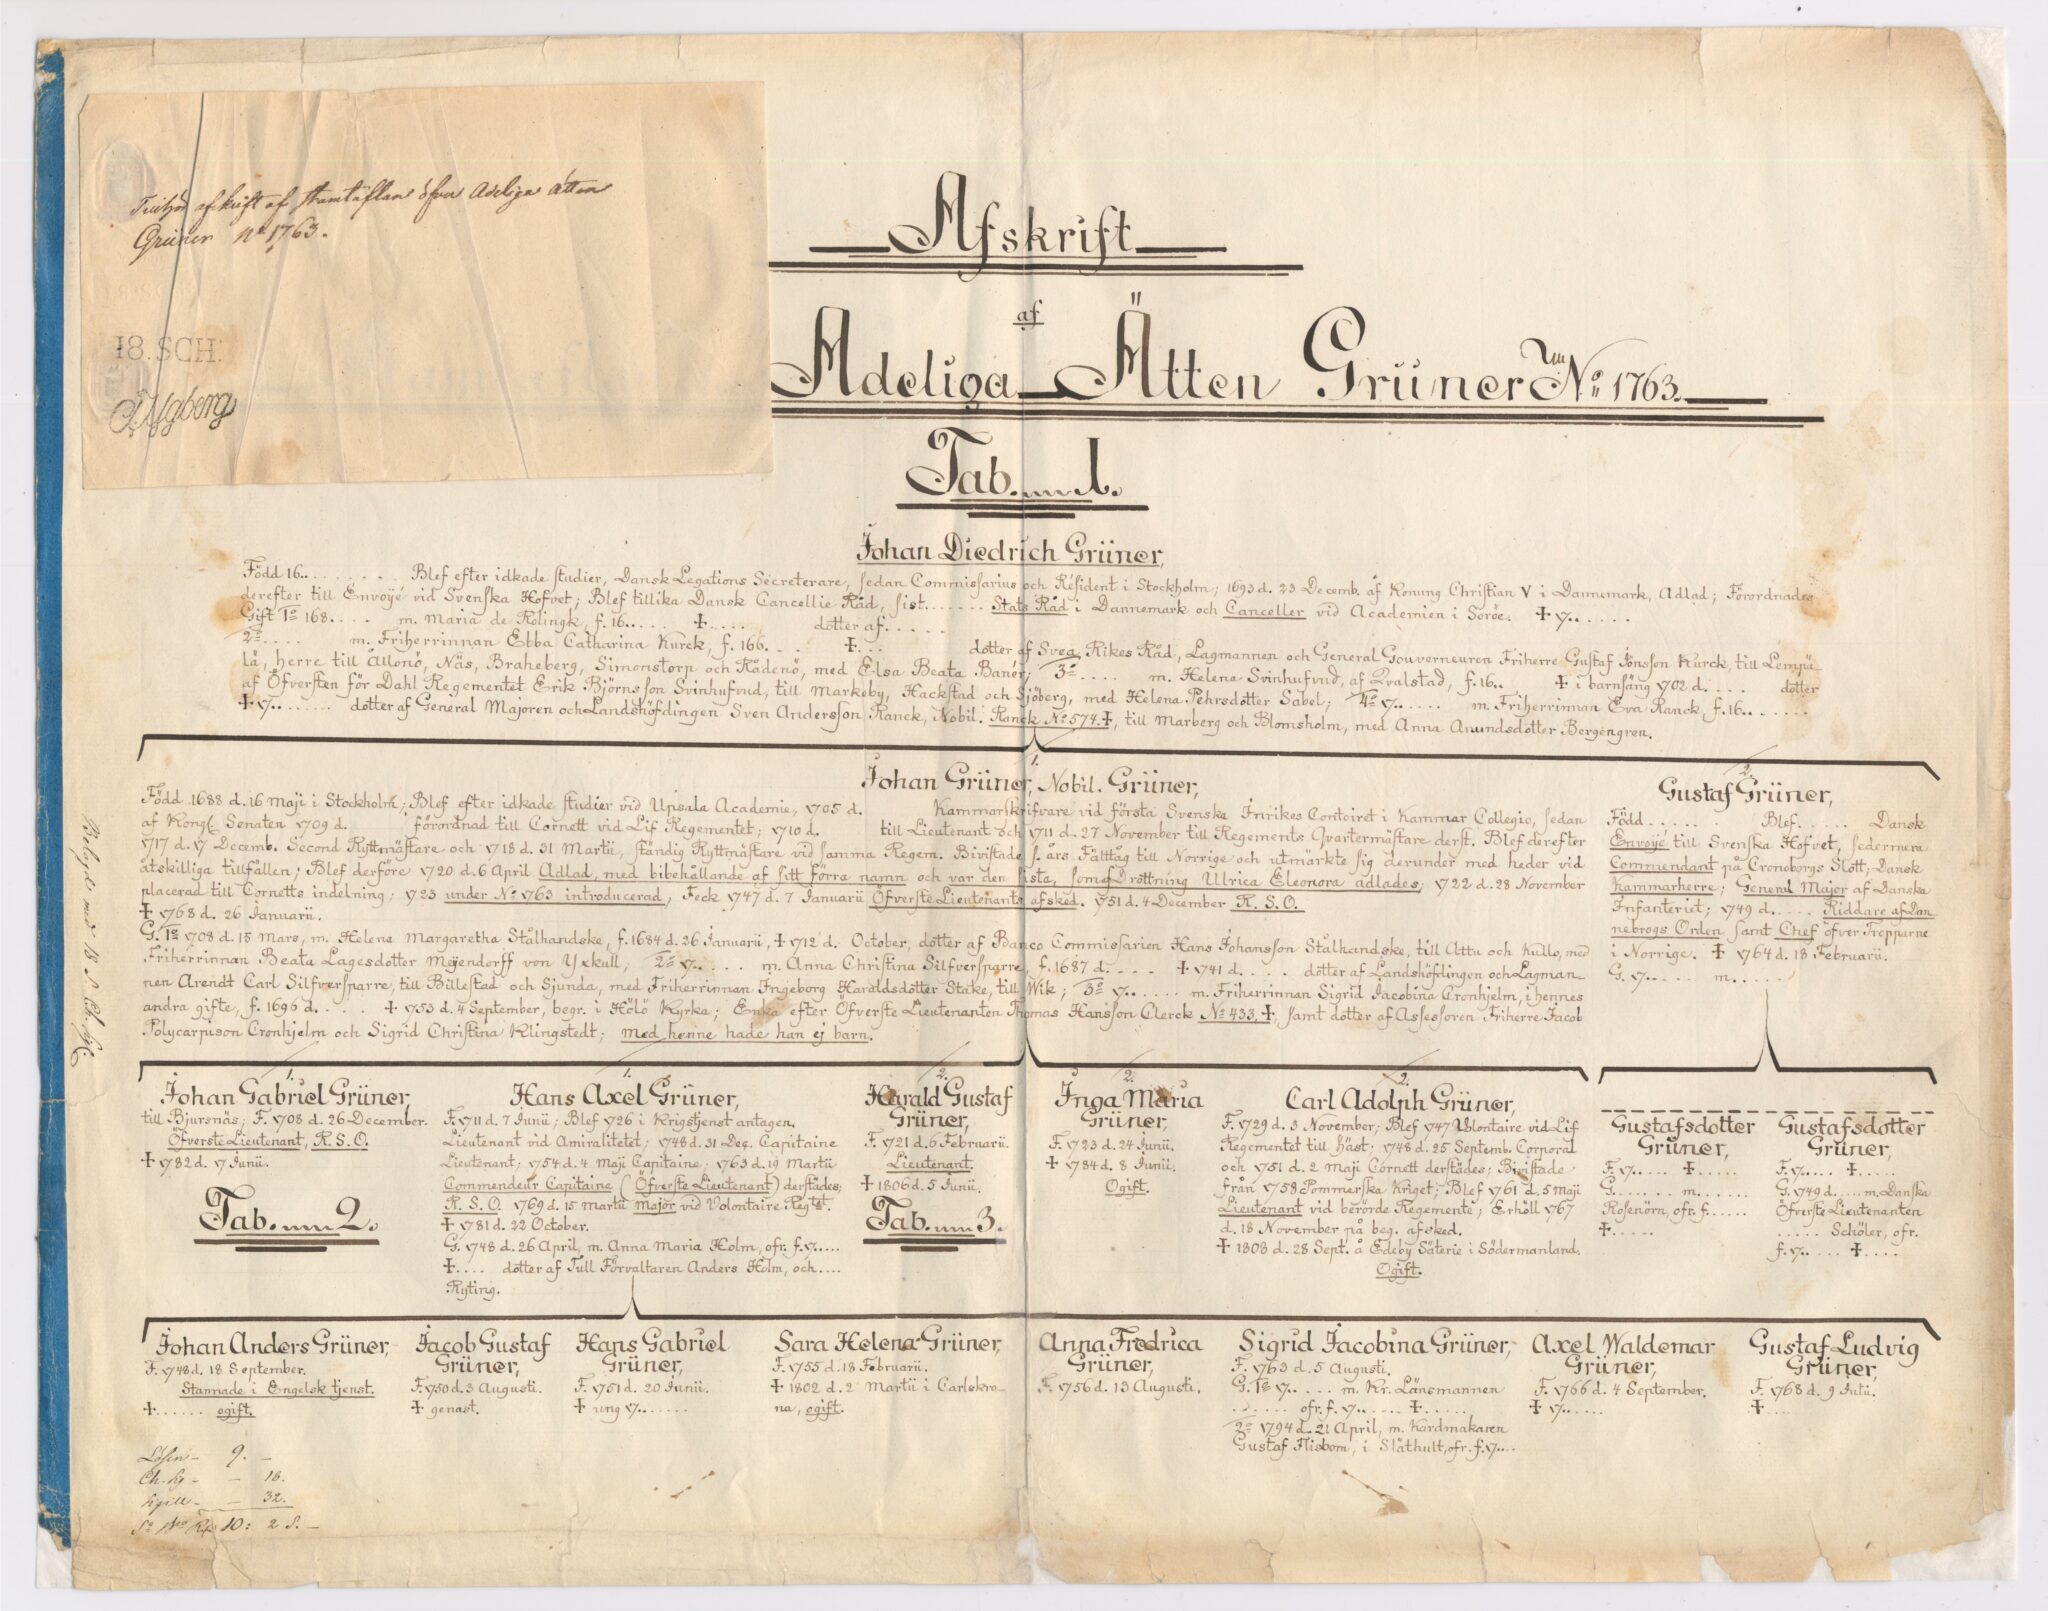 afskrift af stamtaflan öfver Adeliga ätten
Grüner No 1763.
18. SCH:
Afskrift
af
Adeliga Ätten Grüner No 1763.
Tab. 1.
Johan Diedrich Grüner,
Född 16.. . . . . . . . Blef efter idkade studier, Dansk Legations Secreterare, sedan Commissarius och Résident i Stockholm; 1693 d. 23 Decemb. af Konung Christian V i Dannemark, Adlad; Förordnades
derefter till Envoyé vid Svenska Hofvet; Blef tillika Dansk Cancellie Råd, sist. . . . . . . Stats Råd i Dannemark och Canceller vid Academien i Soröe. ‡ 17.. . . . . .
Gift 1o 168. . . . . m. Maria de Rolingk, f. 16.. . . . ‡. . . . dotter af. . . . .
2o . . . . m. Friherrinnan Ebba Catharina Kurck, f. 166. . . ‡. . . dotter af Svea Rikes Råd, Lagmannen och General Gouverneuren Friherre Gustaf Jönsson Kurck, till Lempü-
lä, herre till Ållonö, Näs, Braheberg, Simonstorp och Rådenö, med Elsa Beata Banér; 3o . . . . m. Helena Svinhufvud, af Qvalstad, f. 16.. ‡ i barnsäng 1702 d. . . . dotter
af Öfversten för Dahl Regementet Erik Björnsson Svinhufvud, till Markeby, Hackstad och Sjöberg, med Helena Pehrsdotter Sabel; 4o 17.. . . . . m. Friherrinnan Eva Ranck, f. 16.. . . . . .
‡ 17.. . . . . . dotter af General Majoren och Landshöfdingen Sven Andersson Ranck, Nobil. Ranck No 574. ‡, till Marberg och Blomsholm, med Anna Amundsdotter Bergengren.
1.
Johan Grüner, Nobil. Grüner,
Född 1688 d. 16 Maji i Stockholm; Blef efter idkade studier vid Upsala Academie, 1705 d. Kammarskrifvare vid första Svenska Inrikes Contoiret i Kammar Collegio, sedan
af Kongl Senaten 1709 d. förordnad till Cornett vid Lif Regementet; 1710 d. till Lieutenant och 1711 d. 27 November till Regements Qvartermästare derst. Blef derefter
1717 d. 17 Decemb. Second Ryttmästare och 1718 d. 31 Martii, ständig Ryttmästare vid samma Regem. Bivistade s. års Fälttåg till Norrige och utmärkte sig derunder med heder vid
åtskilliga tillfällen; Blef derföre 1720 d. 6 April Adlad, med bibehållande af sitt förra namn och var den sista, som Drottning Ulrica Eleonora adlades; 1722 d. 28 November
placerad till Cornetts indelning; 1723 under No 1763 introducerad, Feck 1747 d. 7 Januarii Öfverste Lieutenants afsked. 1751 d. 4 December R. S. O.
‡ 1768 d. 26 Januarii.
G. 1o 1708 d. 15 Mars, m. Helena Margaretha Stålhandske, f. 1684 d. 26 Januarii, ‡ 1712 d. October, dotter af Banco Commissarien Hans Johansson Stålhandske, till Attu och Kullo, med
Friherrinnan Beata Lagesdotter Meyendorff von Yxkull; 2o 17.. . . . . m. Anna Christina Silfversparre, f. 1687 d. . . . . ‡ 1741 d. . . . . dotter af Landshöfdingen och Lagman-
nen Arendt Carl Silfversparre, till Billestad och Sjunda, med Friherrinnan Ingeborg Haraldsdotter Stake, till Wik; 3o 17.. . . . . m. Friherrinnan Sigrid Jacobina Cronhjelm, i hennes
andra gifte, f. 1696 d. . . . . ‡ 1753 d. 4 September, begr. i Hölö Kyrka; Enka efter Öfverste Lieutenanten Thomas Hansson Clerck No 433. ‡, samt dotter af Assessoren Friherre Jacob
Polycarpuson Cronhjelm och Sigrid Christina Klingstedt; med henne hade han ej barn.
2.
Gustaf Grüner,
Född . . . . . . Blef. . . . . Dansk
Envoyé till Svenska Hofvet, sedermera
Commendant på Cronoborgs Slott; Dansk
Kammarherre; General Major af Danska
Infanteriet; 1749 d. . . . . Riddare af Dan
nebrogs Orden samt Chef öfver Trepparne
i Norrige. ‡ 1764 d. 18 Februarii.
G. 17.. . . . . m. . . . .
1.
Johan Gabriel Grüner,
till Bjursnäs; F. 1708 d. 26 December.
Öfverste Lieutenant, R. S. O.
‡ 1782 d. 17 Junii.
Tab. 2.
1.
Hans Axel Grüner,
F. 1711 d. 7 Junii; Blef 1726 i Krigstjenst antagen.
Lieutenant vid Amiralitetet; 1748 d. 31 Dec. Capitaine
Lieutenant; 1754 d. 4 Maji Capitaine; 1763 d. 19 Martii
Commendeur Capitaine (Öfverste Lieutenant) derstädes;
R. S. O. 1769 d. 15 Martii Major vid Volontaire Regtet.
‡ 1781 d. 22 October.
G. 1748 d. 26 April, m. Anna Maria Holm, ofr. f. 17.. . . .
‡. . . . dotter af Tull Förvaltaren Anders Holm, och. . . .
Ryting.
2.
Harald Gustaf
Grüner,
F. 1721 d. 6 Februarii.
Lieutenant.
‡ 1806 d. 5 Junii.
Tab. 3.
2.
Inga Maria
Grüner,
F. 1723 d. 24 Junii.
‡ 1784 d. 8 Junii.
Ogift.
2.
Carl Adolph Grüner,
F. 1729 d. 3 November; Blef 1747 Volontaire vid Lif
Regementet till Häst; 1748 d. 25 Septemb. Corporal
och 1751 d. 2 Maji Cornett derstädes; Bivistade
från 1758 Pommerska Kriget; Blef 1761 d. 5 Maji
Lieutenant vid berörde Regemente; Erhöll 1767
d. 18 November på beg. afsked.
‡ 1808 d. 28 Sept. å Edeby Säterie i Södermanland.
Ogift.
Gustafsdotter
Grüner,
F. 17.. . . ‡. . . .
G. . . . . . . m. . . . . .
Rosenörn, ofr. f. . . . .
‡. . . . .
Gustafsdotter
Grüner,
F. 17.. . . ‡. . . .
G. 1749 d. . . . m. Danska
Öfverste Lieutenanten
. . . . . Schöler, ofr.
f. 17.. . . ‡. . . .
Johan Anders Grüner,
F. 1748 d. 18 September.
Stannade i Engelsk tjenst.
‡. . . . . . ogift.
Jacob Gustaf
Grüner,
F. 1750 d. 3 Augusti.
‡ genast.
Hans Gabriel
Grüner,
F. 1751 d. 20 Junii.
‡ ung 17.. . . . . .
Sara Helena Grüner,
F. 1755 d. 18 Februarii.
‡ 1802 d. 2 Martii i Carlskro-
na, ogift.
Anna Fredrica
Grüner,
F. 1756 d. 13 Augusti.
Sigrid Jacobina Grüner,
F. 1763 d. 5 Augusti.
G. 1o 17.. . . . . m. Kr. Länsmannen
. . . . . . ofr. f. 17.. . . . . ‡. . . .
2o 1794 d. 21 April, m. Kardmakaren
Gustaf Flisbom, i Släthult, ofr. f. 17.. . .
Axel Waldemar
Grüner,
F. 1766 d. 4 September.
‡ 17.. . . . .
Gustaf Ludvig
Grüner,
F. 1768 d. 9 Julii.
‡. . . .
Lösen - 9. -
Ch. Sg - - 16.
Sgill - - 32.
10: 2 S. -